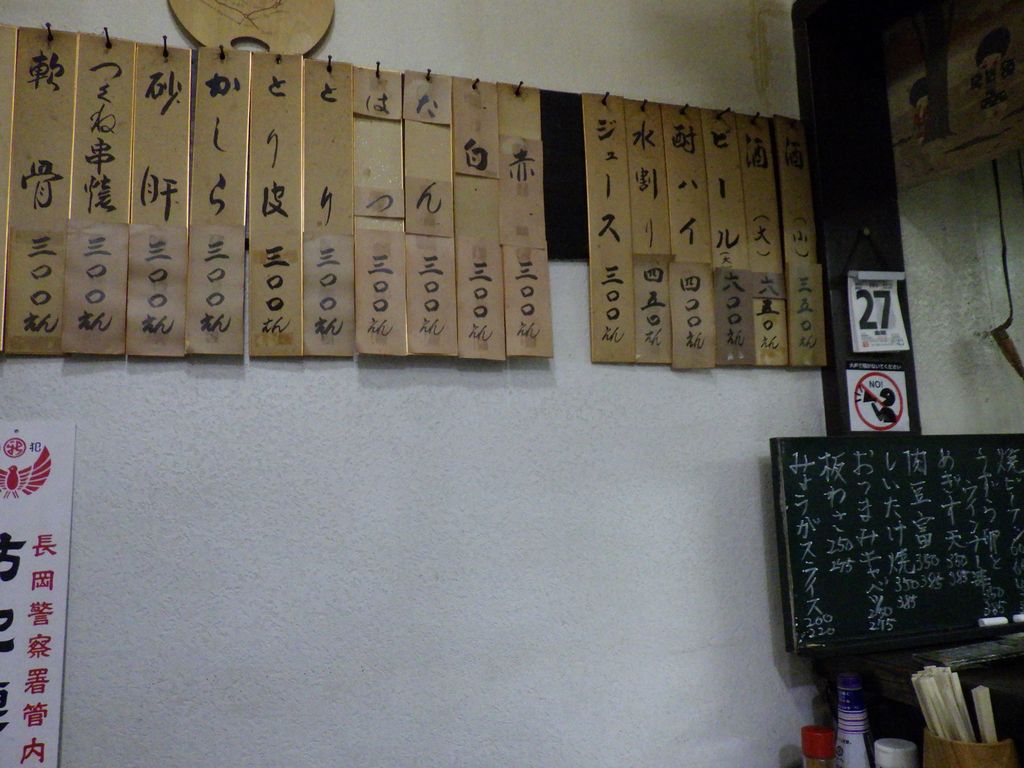 酒（小）三五0えん
酒（大）六五0えん
ビール（大）六00えん
酎ハイ 四00えん
水割り 四五0えん
ジュース 三00えん
赤 三00えん
白 三00えん
たん 三00えん
はつ 三00えん
とり 三00えん
とり皮 三00えん
かしら 三00えん
砂肝 三00えん
つくね串焼 三00えん
軟骨 三00えん
27
NO!
焼ビーフン
うずら卵と
ウインナー串 350 385
めぎす天 350 385
肉豆富 350 385
しいたけ焼 350 385
おつまみキャベツ 250 275
板わさ 250 275
みょうがスライス 200 220
犯
長岡警察署管内